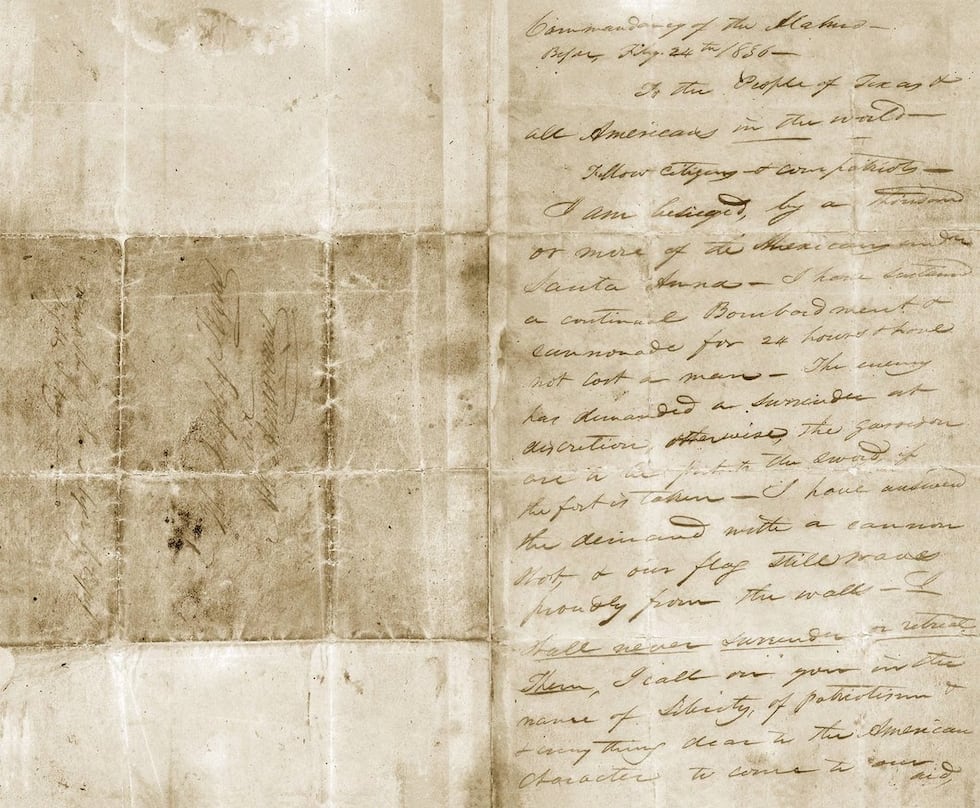 Commandancy of the Alamo—
Bejar, Feby. 24th 1836—
To the People of Texas &
all Americans in the world—
Fellow citizens & compatriots—
I am besieged, by a thousand
or more of the Mexicans under
Santa Anna — I have sustained
a continual Bombardment &
cannonade for 24 hours & have
not lost a man — The enemy
has demanded a surrender at
discretion, otherwise, the garrison
are to be put to the sword, if
the fort is taken — I have answered
the demand with a cannon
shot, & our flag still waves
proudly from the walls — I
shall never surrender or retreat
Then, I call on you in the
name of Liberty, of patriotism &
& every thing dear to the American
character, to come to our
aid,